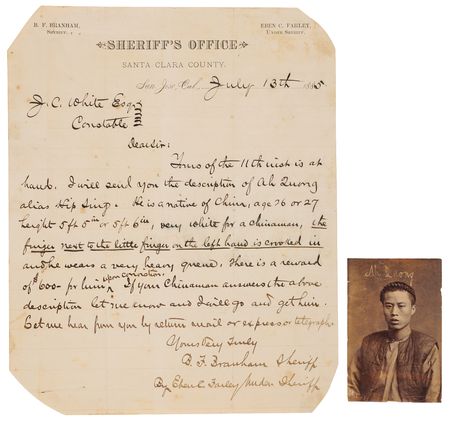 B. F. BRANHAM,
SHERIFF.
EBEN C. FARLEY,
UNDER SHERIFF.
SHERIFF'S OFFICE
SANTA CLARA COUNTY.
San Jose, Cal. July 13th 1885
J. C. White Esq.
Constable
Dear Sir:
Yours of the 11th inst is at
hand. I will send you the description of Ah Quong
alias Hip Sing. He is a native of China, age 26 or 27
height 5 ft 5 in or 5 ft 6 in, very white for a chinaman, the
finger next to the little finger on the left hand is crooked in
and he wears a very heavy queue. There is a reward
upon conviction.
of $600 for him. If your Chinaman answers the above
description let me know and I will go and get him.
Let me hear from you by return mail or express or telegraph.
Yours Very Truly
B. F. Branham Sheriff
By Eben C Farley Under Sheriff
Ah Quong